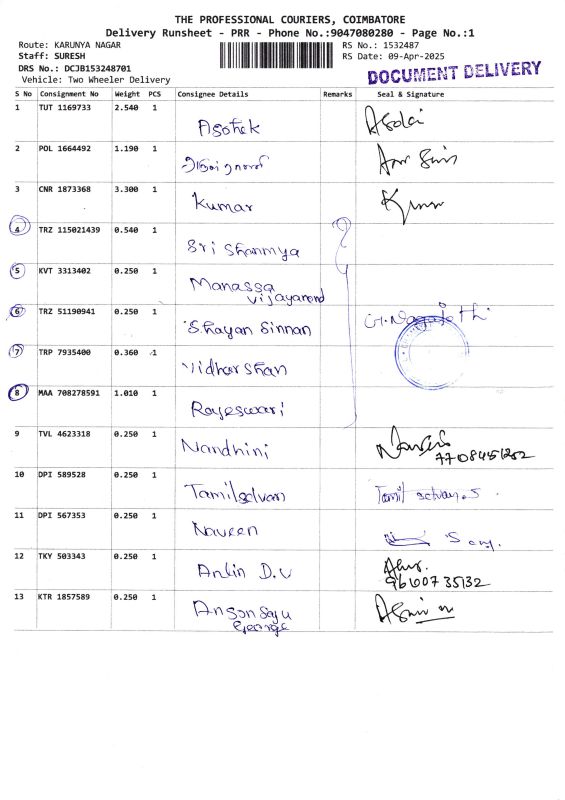 THE PROFESSIONAL COURIERS, COIMBATORE
Delivery Runsheet - PRR - Phone No.:9047080280 - Page No.:1
Route: KARUNYA NAGAR
Staff: SURESH
DRS No.: DCJB153248701
Vehicle: Two Wheeler Delivery
RS No.: 1532487
RS Date: 09-Apr-2025
DOCUMENT DELIVERY
S No Consignment No Weight PCS Consignee Details Remarks Seal & Signature
1 TUT 1169733 2.540 1 Ashok
2 POL 1664492 1.190 1
3 CNR 1873368 3.300 1 Kumar
4 TRZ 115021439 0.540 1 Sri Shanmya
5 KVT 3313402 0.250 1 Manassa
Vijayanand
6 TRZ 51190941 0.250 1 Shayan Sinnan
7 TRP 7935400 0.360 1 Vidharshan
8 MAA 708278591 1.010 1 Rajeswari
9 TVL 4623318 0.250 1 Nandhini
7708451252
10 DPI 589528 0.250 1 Tamilselvan Tamil selvan.S
11 DPI 567353 0.250 1 Naveen
12 TKY 503343 0.250 1 Anlin D.V
9600735132
13 KTR 1857589 0.250 1 Anson Saju
George